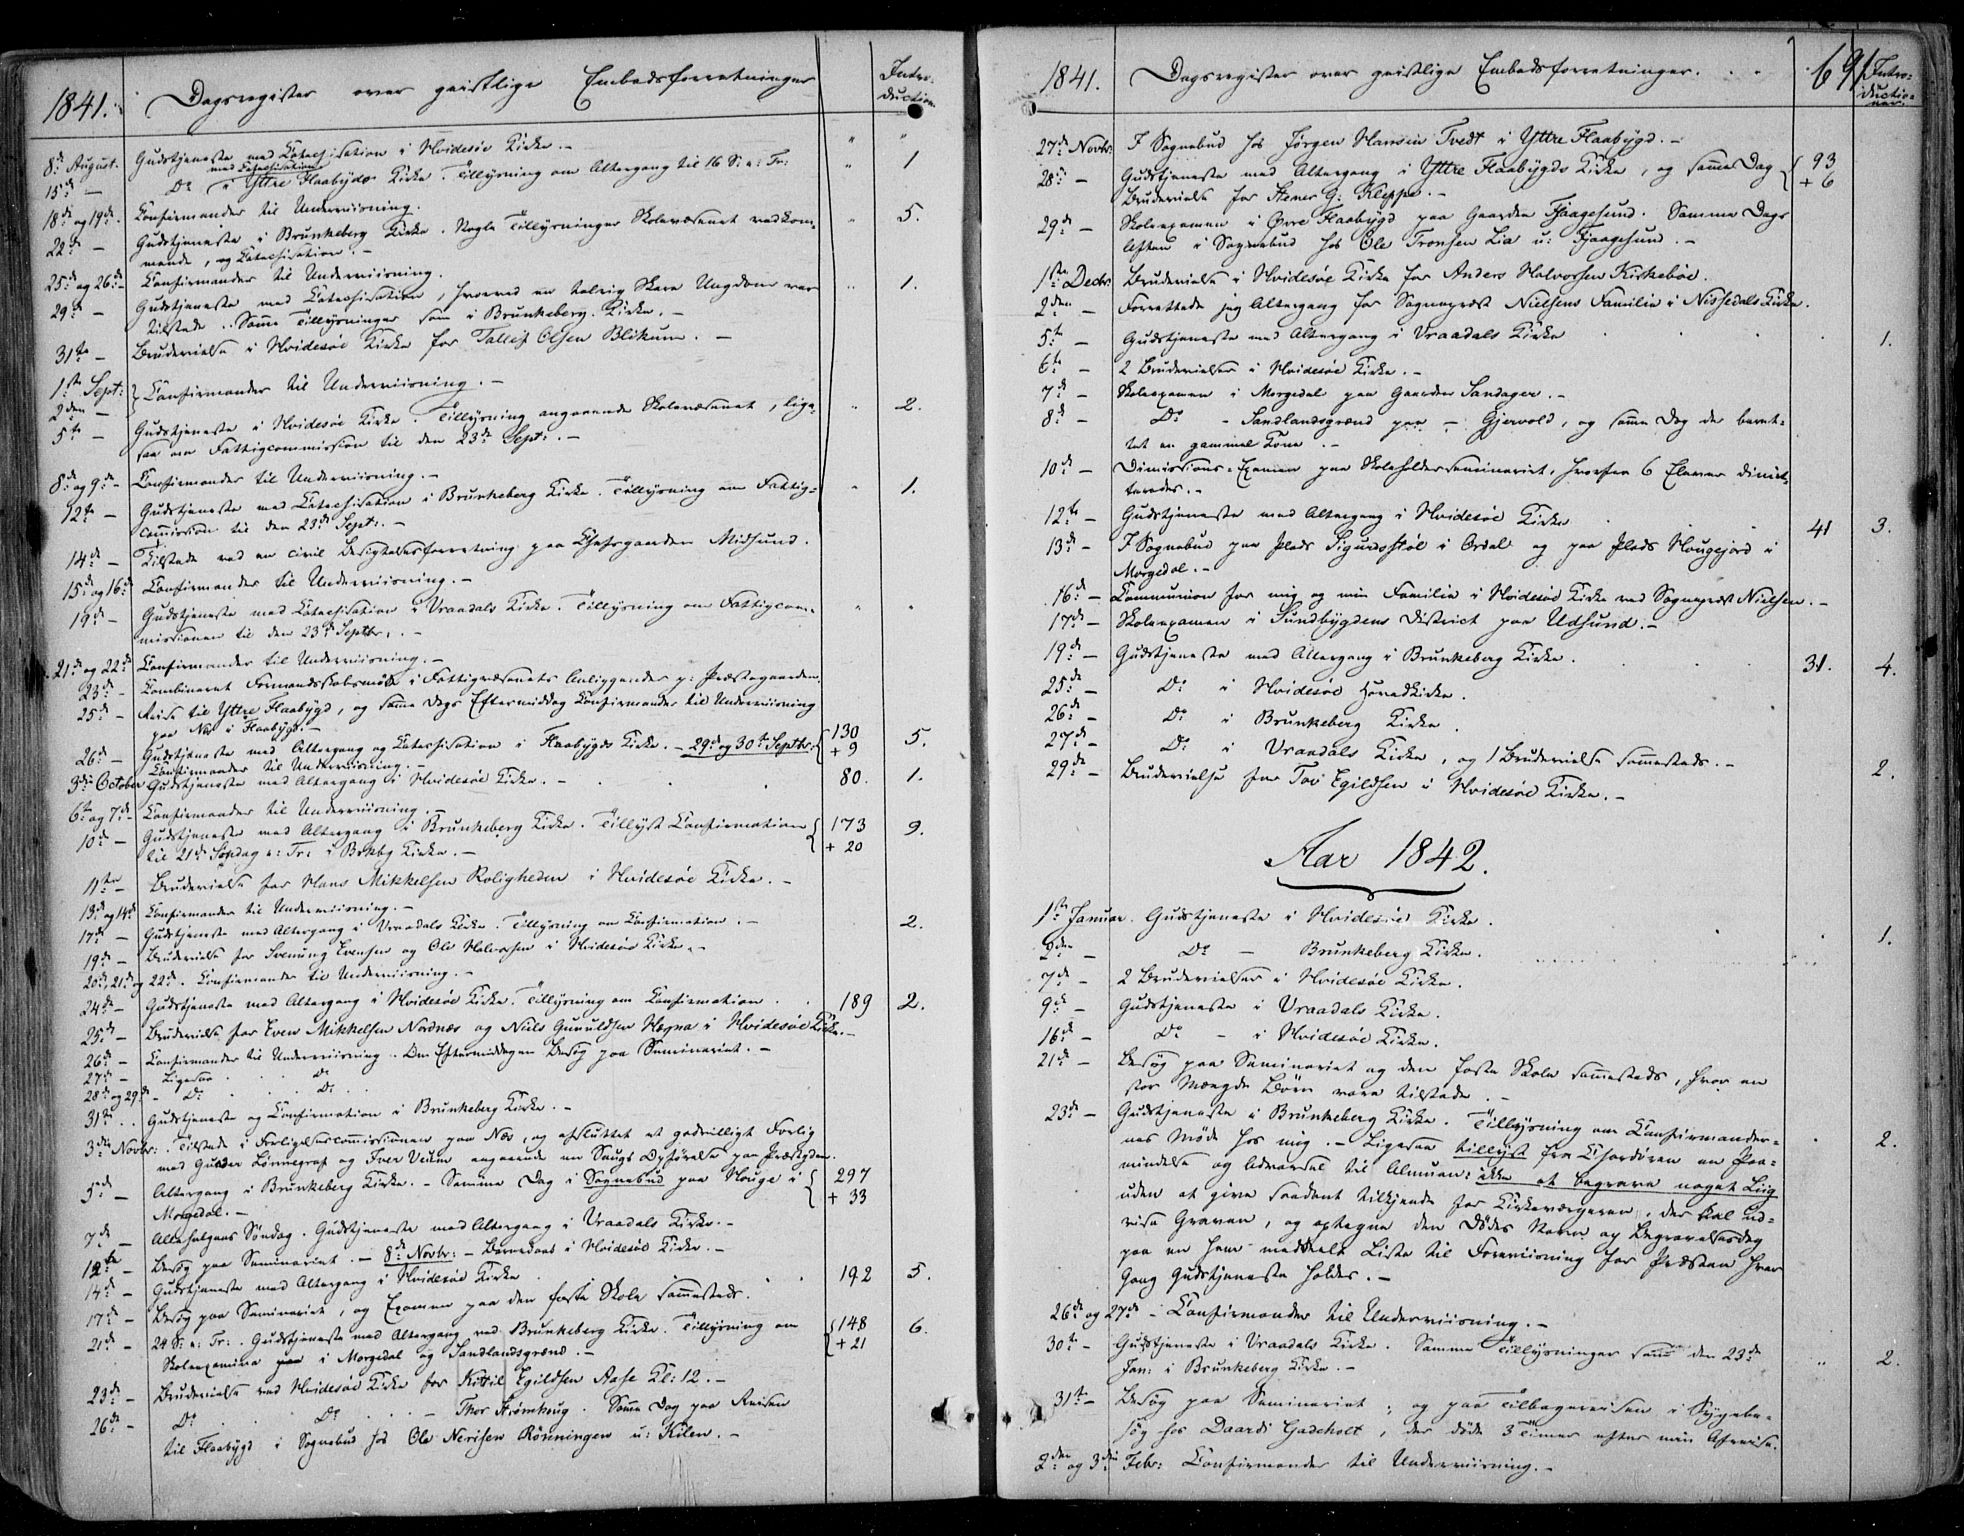 1841. Dagsregister over geistlige Embedsforretninger Intro-
duction
8de August. Gudstjeneste med Catechisation i Hvidesøe Kirke.- " "
med Catechisation
15de - Do i Yttre Flaabygds Kirke. Tillysning om Altergang til 16 S: e: Tr: " 1
18de og 19de. Confirmander til Underviisning.
22de - Gudstjeneste i Brunkeberg Kirke. Nogle Tillysninger Skolevæsenet vedkom- " 5.
mende, og Catechisation.-
25de og 26de- Confirmander til Underviisning.
29de - Gudstjeneste med Catechisation, hvorved en talrig Skare Ungdom var " 1.
tilstede. Samme Tillysninger som i Brunkeberg Kirke.-
31te - Brudevielse i Hvidesøe Kirke for Tallef Olsen Blikum.-
1ste Sept: } Confirmander til Underviisning.-
2den -
5te - Gudstjeneste i Hvidesøe Kirke. Tillysning angaaende Skolevæsenet, lige- " 2.
saa om Fattigcommission til den 23de Sept:.-
8de og 9de- Confirmander til Underviisning.-
12te - Gudstjeneste med Catechisation i Brunkeberg Kirke. Tillysning om Fattig- " 1.
commission til den 23de Sept:.-
14de - Tilstede ved en civil Besigtelsesforretning paa Chefsgaarden Midsund.
15de og 16de Confirmander til Underviisning.-
19de - Gudstjeneste med Catechisation i Vraadals Kirke. Tillysning om Fattigcom- " "
missionen til den 23de Septbr:.-
21de og 22de Confirmander til Underviisning.-
23de - Combineret Formandsskabsmøde i Fattigvæsenets Anliggender p: Præstegaarden
25de - Reise til Yttre Flaabygd, og samme Dags Eftermiddag Confirmander til Underviisning
paa Næs i Flaabygd.-
26de - Gudstjeneste med Altergang og Catechisation i Flaabygds Kirke.- 29de og 30te Septbr: { 130 + 9 5.
Confirmander til Underviisning.-
3die October Gudstjeneste med Altergang i Hvidesøe Kirke.- 80. 1.
6te og 7de Confirmander til Underviisning.-
10de - Gudstjeneste med Altergang i Brunkeberg Kirke. Tillyst Confirmation { 173 9.
til 21de Søndag e: Tr: i Brkbg Kirke.- + 20
11te - Brudevielse for Hans Mikkelsen Roligheden i Hvidesøe Kirke.-
13de og 14de Confirmander til Underviisning.-
17de - Gudstjeneste med Altergang i Vraadals Kirke. Tillysning om Confirmation.- 2.
19de - Brudevielse for Svenung Evensen og Ole Halvorsen i Hvidesøe Kirke.-
20de, 21de og 22de. Confirmander til Underviisning.-
24de - Gudstjeneste med Altergang i Hvidesøe Kirke. Tillysning om Confirmation. 189 2.
25de - Brudevielse for Even Mikkelsen Nordnæs og Niels Gunuldsen Hægna i Hvidesøe Kirke.-
26de - Confirmander til Underviisning. Om Eftermiddagen Besøg paa Seminariet.-
27de - Ligesaa Do
28de og 29de- Do. Do.
31te.. Gudstjeneste og Confirmation i Brunkeberg Kirke.-
3die Novbr: Tilstede i Forligelsescommissionen paa Næs, og afsluttet et godvilligt Forlig
med Gunder Lønnegrav og Iver Veum angaaende en Saugs Opførelse paa Præstegden.
5te - Altergang i Brunkeberg Kirke.- Samme Dag i Sognebud paa Houge i { 297
Morgedal.- + 33
7de - Allehelgens Søndag. Gudstjeneste med Altergang i Vraadals Kirke.-
12te - Besøg paa Seminariet.- 8de Novbr:- Barnedaab i Hvidesøe Kirke.-
14de - Gudstjeneste med Altergang i Hvidesøe Kirke 192 5.
17de - Besøg paa Seminariet, og Examen paa den faste Skole sammesteds.
21de - 24 S: e: Tr:. Gudstjeneste med Altergang ved Brunkeberg Kirke. Tillysning om { 148 6.
Skoleexamina paa i Morgedal og Sandlandsgrend.- + 21
23de - Brudevielse ved Hvidesøe Kirke for Kittil Egildsen Aase Kl: 12.-
26de - Do Do - Thor Strømhoug. Samme Dag paa Reisen
til Flaabygd i Sognebud hos Ole Nerisen Rönningen u: Kilen.-
1841. Dagsregister over geistlige Embedsforretninger. 691 Intro-
ductio-
ner.
27de Novbr: I Sognebud hos Jørgen Hansen Tvedt i Yttre Flaabygd.-
28de - Gudstjeneste med Altergang i Yttre Flaabygds Kirke, og samme Dag { 93
Brudevielse for Stener G: Kleppe.- + 6
29de - Skoleexamen i Øvre Flaabygd paa Gaarden Fjaagesund. Samme Dags
Aften i Sognebud hos Ole Tronsen Lia u: Fjaagesund.-
1ste Decbr: Brudevielse i Hvidesøe Kirke for Anders Halvorsen Kirkebøe.
2den - Forrettede jeg Altergang for Sognepræst Nielsens Familie i Nissedals Kirke.
5te - Gudstjeneste med Altergang i Vraadals Kirke 1.
6te - 2 Brudevielser i Hvidesøe Kirke.-
7de - Skoleexamen i Morgedal paa Gaarden Sandager.-
8de - Do - Sandlandsgrend paa - Gjervold, og samme Dag der beret-
tet en gammel Kone.-
10de - Dimissions-Examen paa Skoleholderseminariet, hvorfra 6 Elever dimit-
teredes.-
12te - Gudstjeneste med Altergang i Hvidesøe Kirke 41 3.
13de - I Sognebud paa Plads Sigurdsstøl i Ordal og paa Plads Hougejord i
Morgedal.-
16de - Communion for mig og min Familie i Hvidesøe Kirke ved Sognepræst Nielsen.-
17de - Skoleexamen i Sundbygdens District paa Udsund.-
19de - Gudstjeneste med Altergang i Brunkeberg Kirke. 31. 4.
25de - Do i Hvidesøe Hovedkirke.
26de - Do i Brunkeberg Kirke.
27de - Do i Vraadals Kirke, og 1 Brudevielse sammesteds.-
29de - Brudevielse for Tov Egildsen i Hvidesøe Kirke.- 2.
Aar 1842.
1ste Januar. Gudstjeneste i Hvidesøe Kirke.
2den - Do - Brunkeberg Kirke. 1.
7de - 2 Brudevielser i Hvidesøe Kirke.
9de - Gudstjeneste i Vraadals Kirke.
16de - Do - i Hvidesøe Kirke.
21de - Besøg paa Seminariet og den faste Skole sammesteds, hvor en
stor Mængde Børn vare tilstede.-
23de - Gudstjeneste i Brunkeberg Kirke. Tillysning om Confirmander-
nes Møde hos mig.- Ligesaa tillyst fra Chordøren en Paa- 2.
mindelse og Advarsel til Almuen: ikke at begrave noget Liig
uden at give saadant tilkjende for Kirkeværgeren, der skal ud-
vise Graven, og optegne den Dødes Navn og Begravelsesdag
paa en ham meddeelt Liste til Foreviisning for Præsten hver
Gang Gudstjeneste holdes.-
26de og 27de - Confirmander til Underviisning.-
30te - Gudstjeneste i Vraadals Kirke. Samme Tillysninger som den 23de " 2.
Jan: i Brunkeberg Kirke.-
31te - Besøg paa Seminariet; og paa Tilbagereisen i Sygebe-
søg hos Daardi Gadeholt, der døde 3 Timer efter min Afreise.
2den og 3die Febr: Confirmander til Underviisning.-